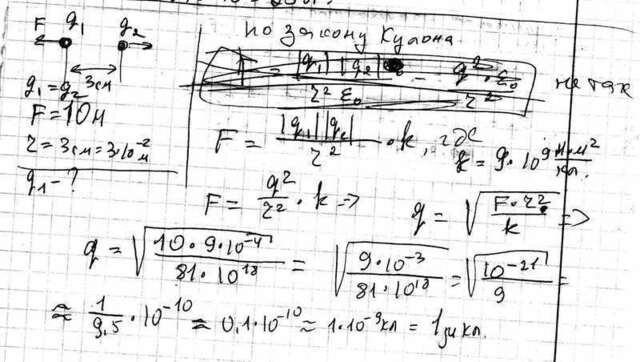 F q₁ q₂
3см
q₁ = q₂
F = 10 н
r = 3 см = 3·10⁻² м
q₁ - ?
по закону Кулона
не так
F = |q₁||q₂| / r² · k, где
k = 9·10⁹ Н·м² / кл.
F = q² / r² · k =>
q = √(F·r² / k) =>
q = √(10·9·10⁻⁴ / 81·10¹⁸) = √(9·10⁻³ / 81·10¹⁸) = √(10⁻²¹ / 9) =
≈ 1 / 9,5 · 10⁻¹⁰ ≈ 0,1·10⁻¹⁰ ≈ 1·10⁻⁹ кл = 1